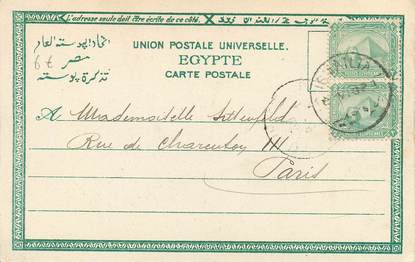 L'adresse seule doit être écrite de ce côté.
اتحاد البوستة العام
مصر
تذكرة بوستة
UNION POSTALE UNIVERSELLE.
EGYPTE
CARTE POSTALE
ISMAILIA
A Mademoiselle
Rue de Charenton 111
Paris